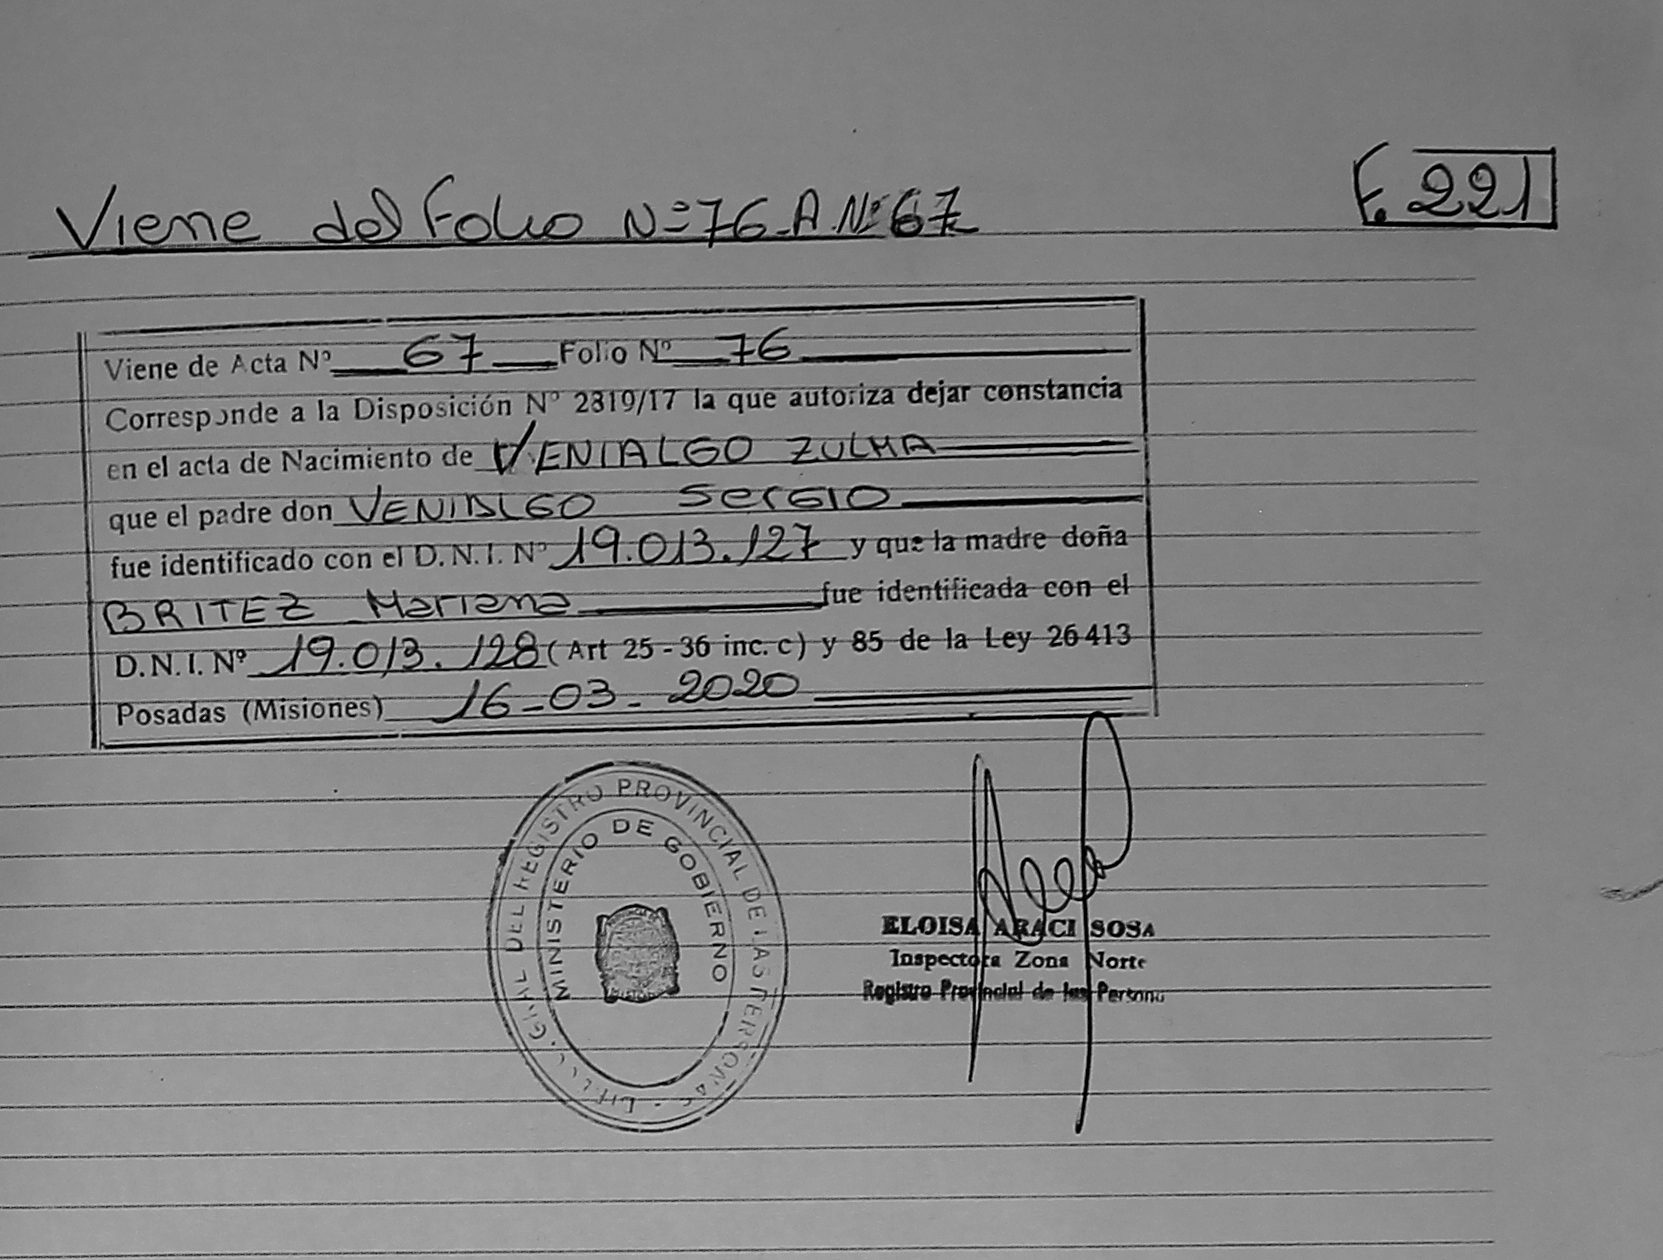 Viene del Folio Nº 76 A.Nº 67
F. 221
Viene de Acta Nº 67 Folio Nº 76
Corresponde a la Disposición Nº 2319/17 la que autoriza dejar constancia
en el acta de Nacimiento de VENIALGO ZULMA
que el padre don VENIALGO Sergio
fue identificado con el D.N.I. Nº 19.013.127 y que la madre doña
BRITEZ Mariana fue identificada con el
D.N.I. Nº 19.013.128 (Art 25-36 inc. c) y 85 de la Ley 26413
Posadas (Misiones) 16-03-2020
GRAL DEL REGISTRO PROVINCIAL DE LAS PERSONAS
MINISTERIO DE GOBIERNO
ELOISA ARACI SOSA
Inspectora Zona Norte
Registro Provincial de las Persona